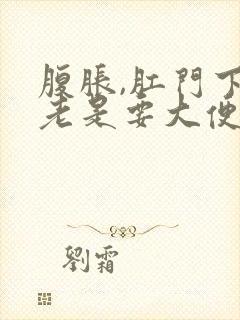 腹脹,肛門下
老是要大便
劉霜